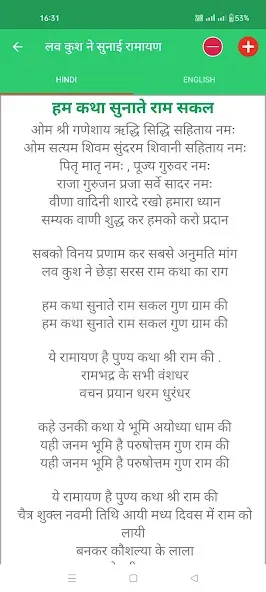 16:31
53%
लव कुश ने सुनाई रामायण
HINDI
ENGLISH
हम कथा सुनाते राम सकल
ओम श्री गणेशाय ऋद्धि सिद्धि सहिताय नमः
ओम सत्यम शिवम सुंदरम शिवानी सहिताय नमः
पितृ मातृ नमः , पूज्य गुरुवर नमः
राजा गुरुजन प्रजा सर्वे सादर नमः
वीणा वादिनी शारदे रखो हमारा ध्यान
सम्यक वाणी शुद्ध कर हमको करो प्रदान
सबको विनय प्रणाम कर सबसे अनुमति मांग
लव कुश ने छेड़ा सरस राम कथा का राग
हम कथा सुनाते राम सकल गुण ग्राम की
हम कथा सुनाते राम सकल गुण ग्राम की
ये रामायण है पुण्य कथा श्री राम की .
रामभद्र के सभी वंशधर
वचन प्रयान धरम धुरंधर
कहे उनकी कथा ये भूमि अयोध्या धाम की
यही जनम भूमि है परुषोत्तम गुण राम की
यही जनम भूमि है परुषोत्तम गुण राम की
ये रामायण है पुण्य कथा श्री राम की
चैत्र शुक्ल नवमी तिथि आयी मध्य दिवस में राम को
लायी
बनकर कौशल्या के लाला